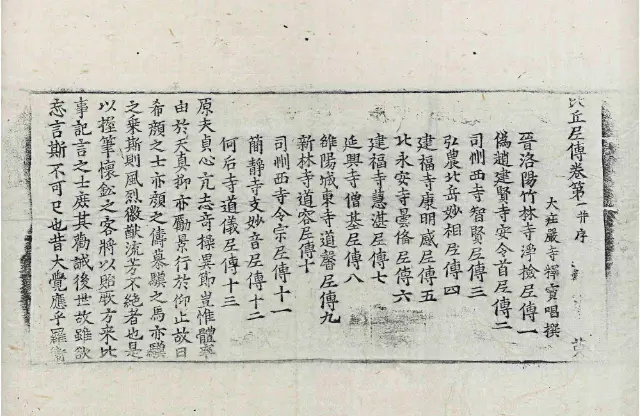 比丘尼傳卷第一并序
大莊嚴寺釋寶唱撰
晉洛陽竹林寺淨檢尼傳一
偽趙建賢寺安令首尼傳二
司州西寺智賢尼傳三
弘農北岳妙相尼傳四
建福寺康明感尼傳五
北永安寺曇俻尼傳六
建福寺慧湛尼傳七
延興寺僧基尼傳八
雒陽城東寺道馨尼傳九
新林寺道容尼傳十
司州西寺令宗尼傳十一
簡靜寺支妙音尼傳十二
何后寺道儀尼傳十三
原夫貞心亢志奇操異節豈惟體率
由於天真抑亦勵景行於仰止故曰
希顏之士亦顏之儔慕驥之馬亦驥
之乘斯則風烈徽猷流芳不絕者也是
以握筆懷鈆之客將以貽厥方来比
事記言之士庶其勸誡後世故雖欲
忘言斯不可已也昔大覺應乎羅衛